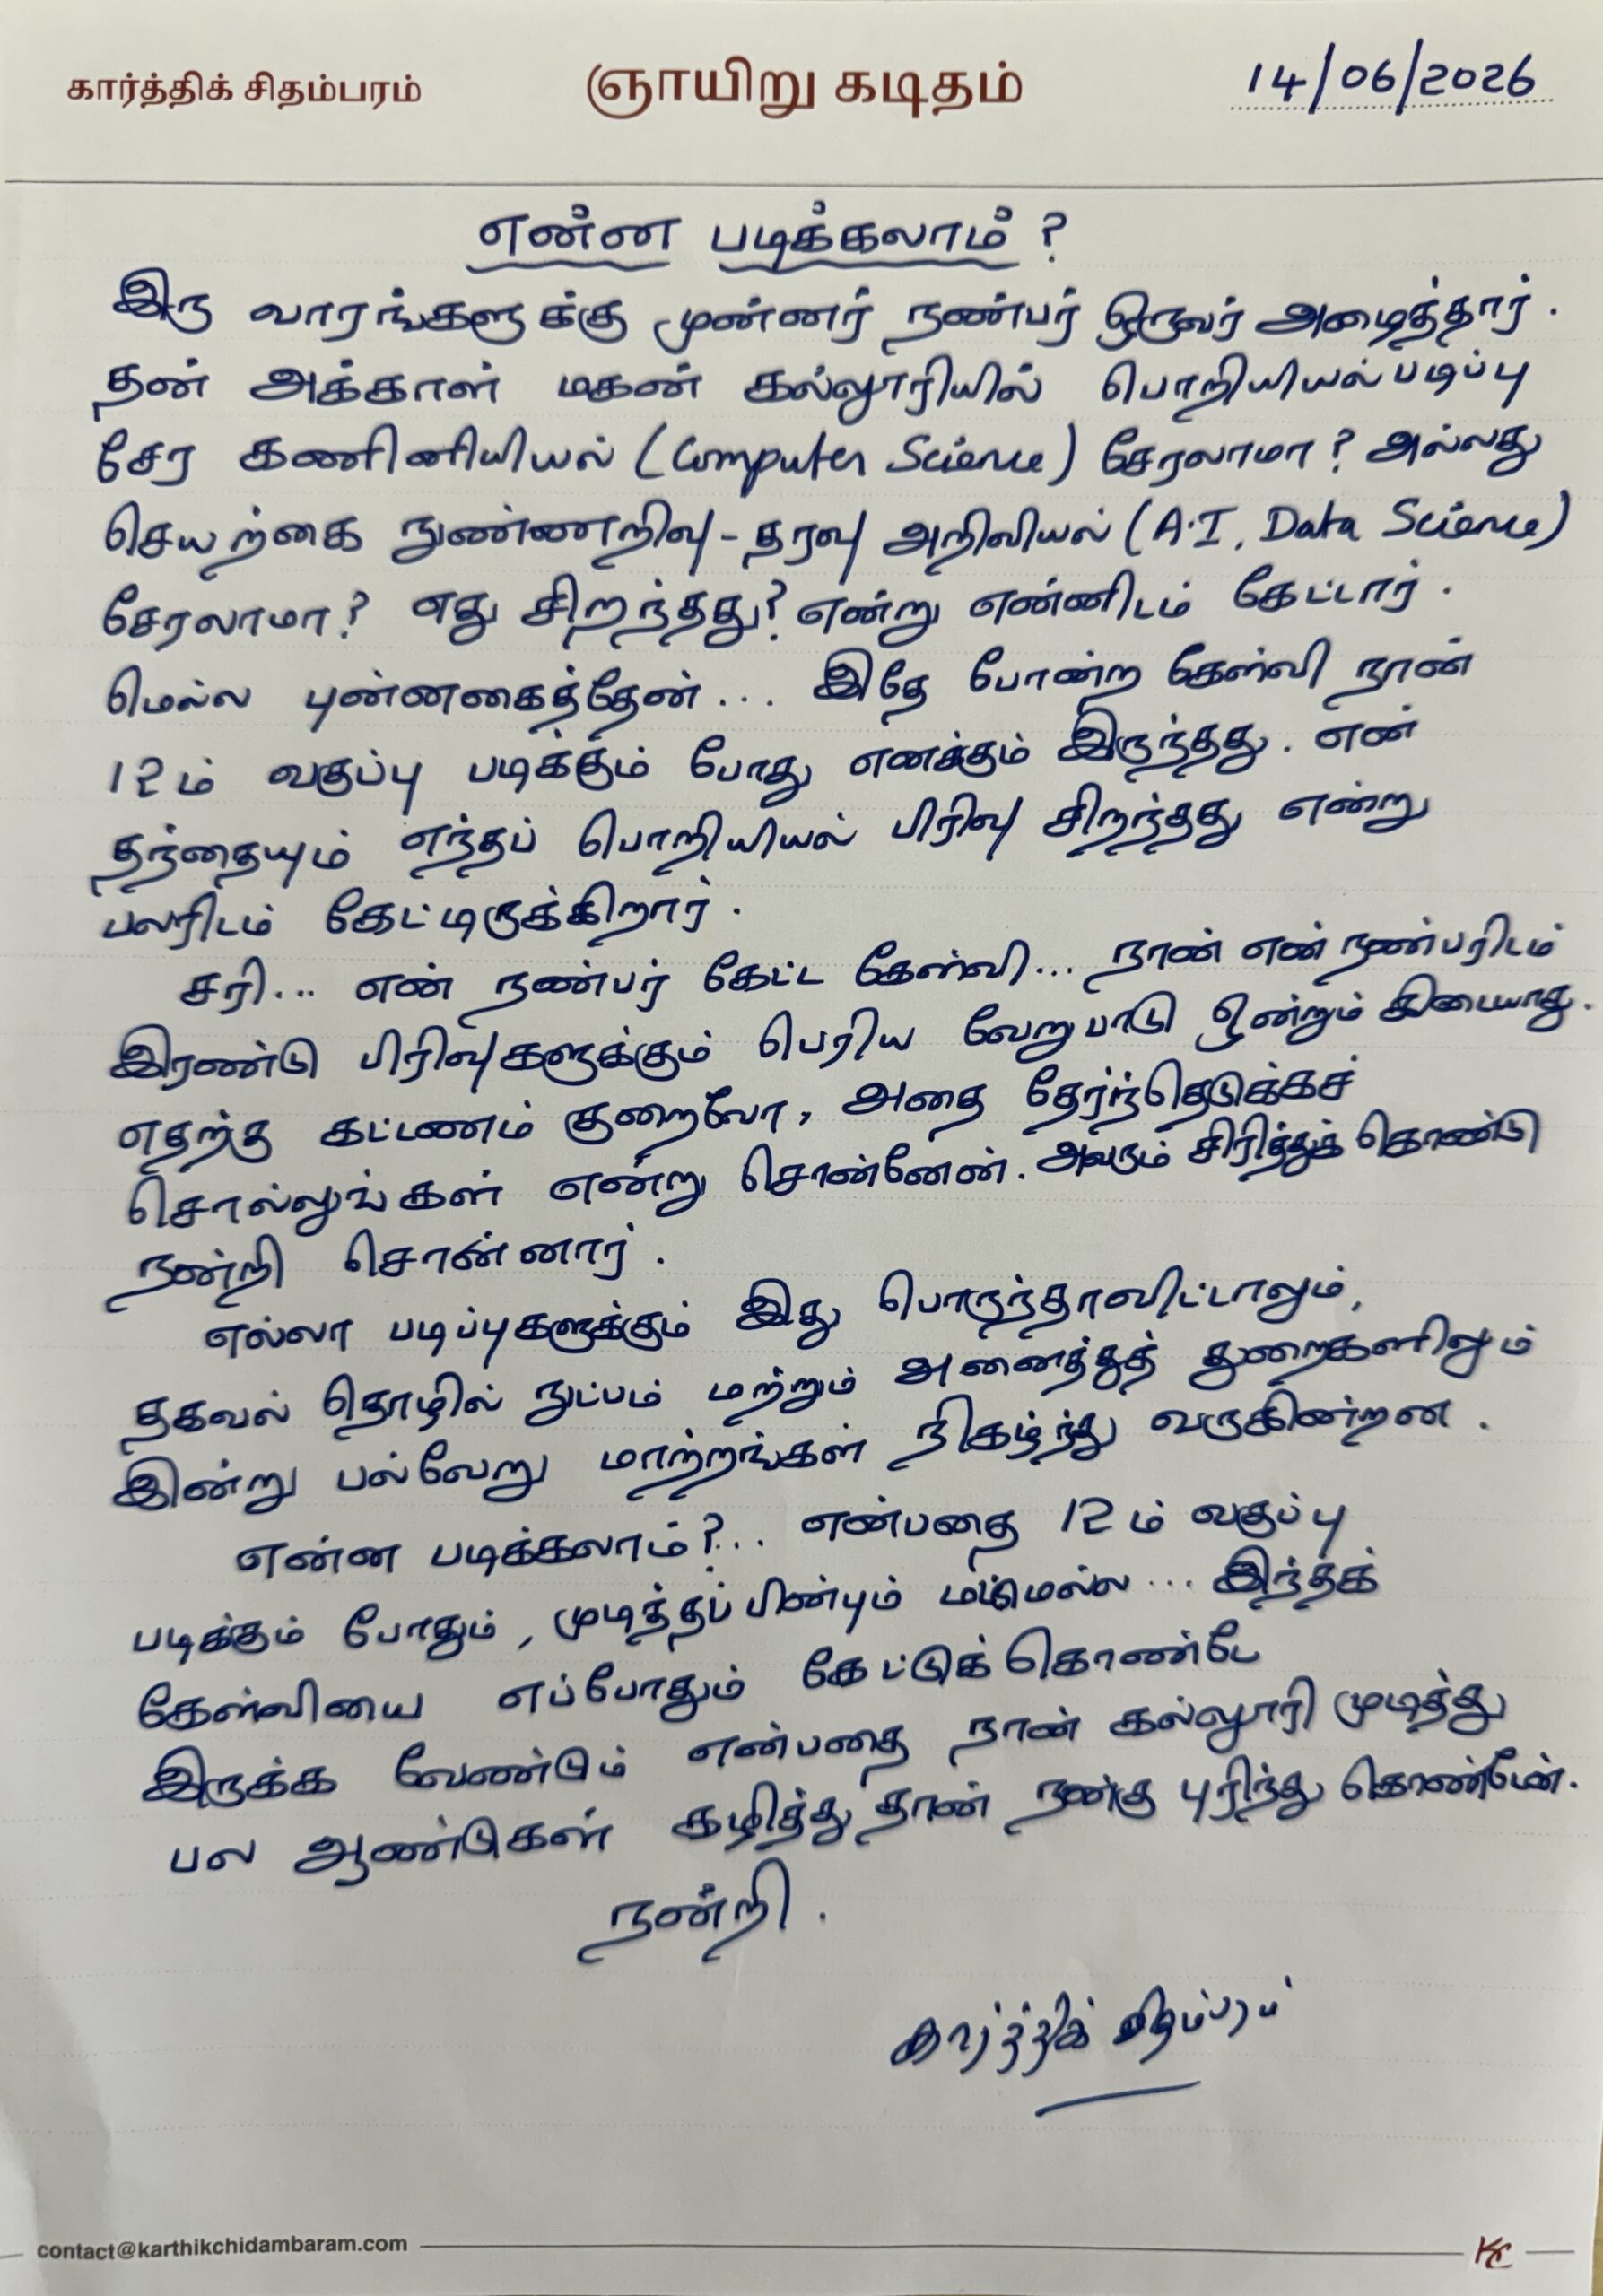 கார்த்திக் சிதம்பரம்
ஞாயிறு கடிதம்
14/06/2026
என்ன படிக்கலாம்?
இரு வாரங்களுக்கு முன்னர் நண்பர் ஒருவர் அழைத்தார்.
தன் அக்காள் மகன் கல்லூரியில் பொறியியல் படிப்பு
சேர கணினியியல் (Computer Science) சேரலாமா? அல்லது
செயற்கை நுண்ணறிவு - தரவு அறிவியல் (A.I, Data Science)
சேரலாமா? எது சிறந்தது? என்று என்னிடம் கேட்டார்.
மெல்ல புன்னகைத்தேன்... இதே போன்ற கேள்வி நான்
12ம் வகுப்பு படிக்கும் போது எனக்கும் இருந்தது. என்
தந்தையும் எந்தப் பொறியியல் பிரிவு சிறந்தது என்று
பலரிடம் கேட்டிருக்கிறார்.
சரி... என் நண்பர் கேட்ட கேள்வி... நான் என் நண்பரிடம்
இரண்டு பிரிவுகளுக்கும் பெரிய வேறுபாடு ஒன்றும் கிடையாது.
எதற்கு கட்டணம் குறைவோ, அதை தேர்ந்தெடுக்கச்
சொல்லுங்கள் என்று சொன்னேன். அவரும் சிரித்துக் கொண்டு
நன்றி சொன்னார்.
எல்லா படிப்புகளுக்கும் இது பொருந்தாவிட்டாலும்,
தகவல் தொழில் நுட்பம் மற்றும் அனைத்துத் துறைகளிலும்
இன்று பல்வேறு மாற்றங்கள் நிகழ்ந்து வருகின்றன.
என்ன படிக்கலாம்?... என்பதை 12ம் வகுப்பு
படிக்கும் போதும், முடித்தப் பின்பும் மட்டுமல்ல... இந்தக்
கேள்வியை எப்போதும் கேட்டுக் கொண்டே
இருக்க வேண்டும் என்பதை நான் கல்லூரி முடித்து
பல ஆண்டுகள் கழித்து தான் நன்கு புரிந்து கொண்டேன்.
நன்றி.
கார்த்திக் சிதம்பரம்
contact@karthikchidambaram.com
KC